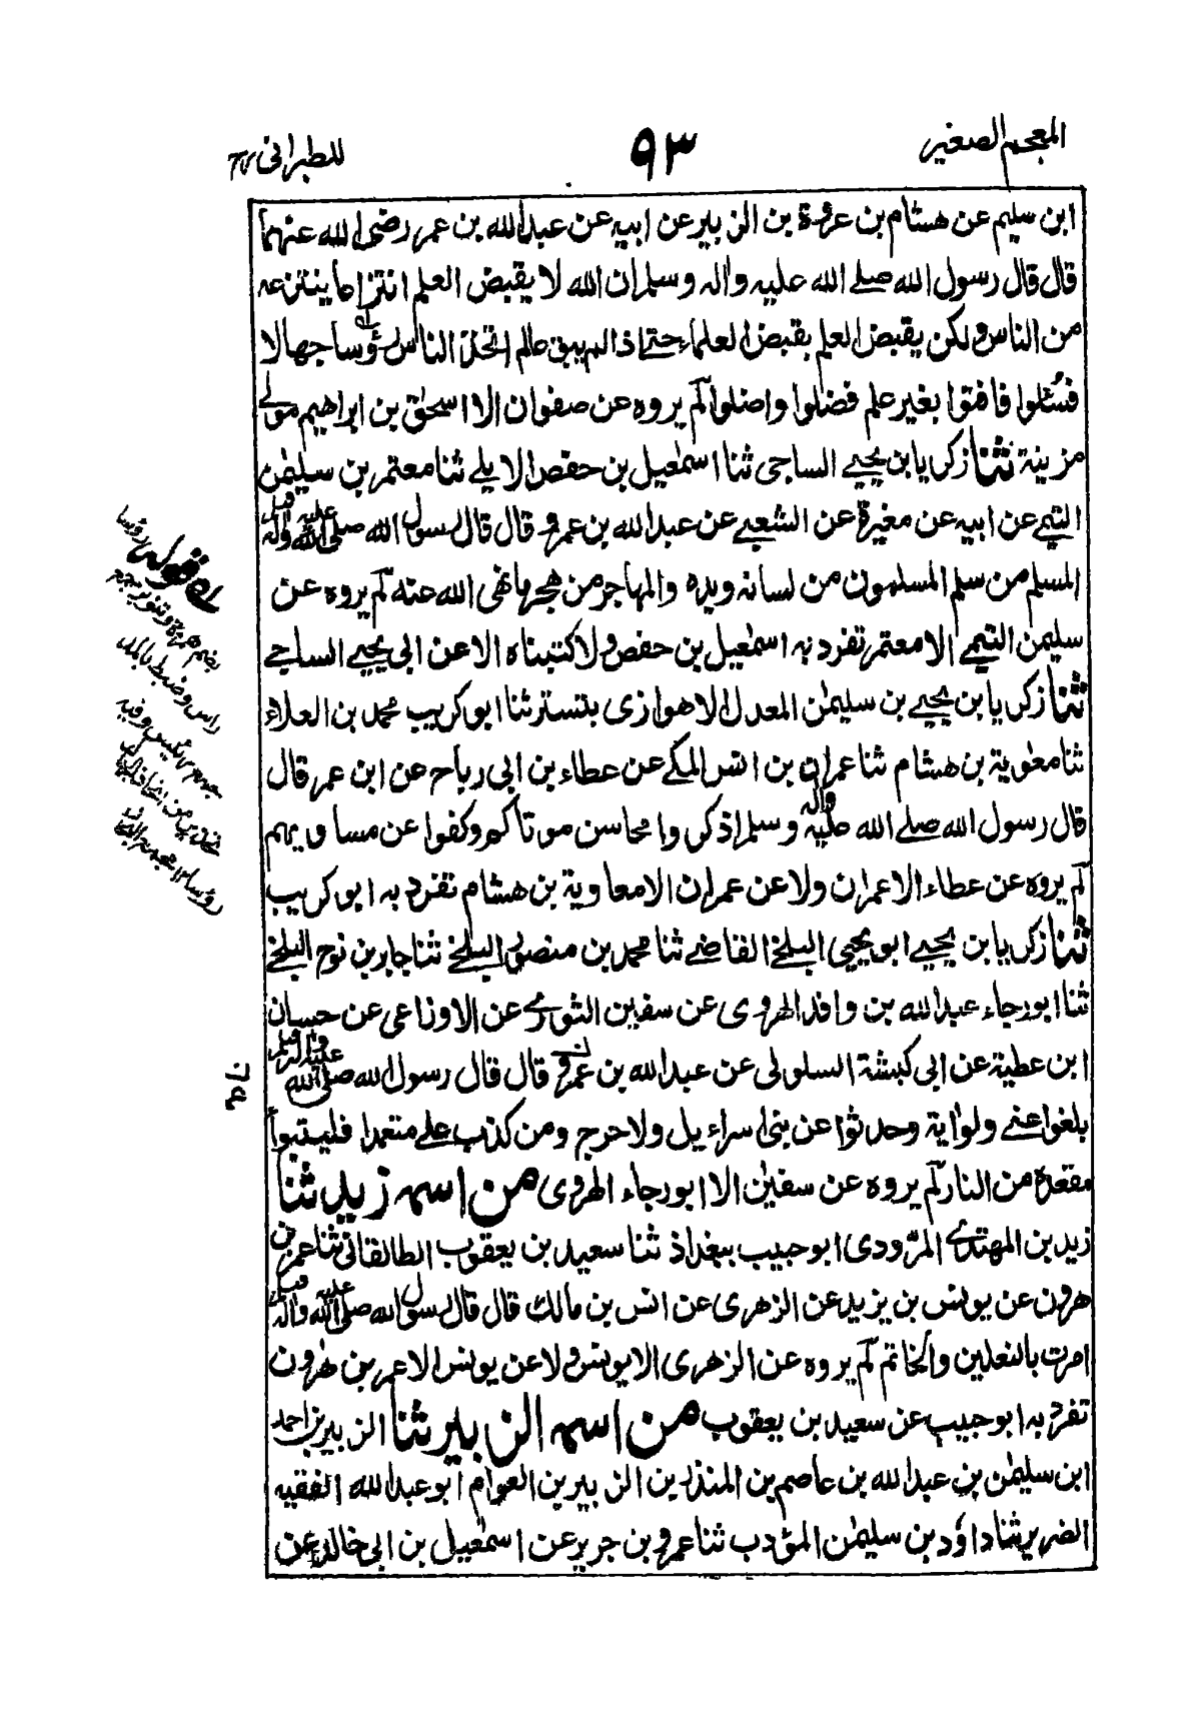 المعجم الصغير
٩٣
للطبراني
ابن سليم عن هشام بن عروة بن الزبير عن ابيه عن عبدالله بن عمر رضى الله عنهما
قال قال رسول الله صلے الله عليه واله وسلم ان الله لا يقبض العلم انتزاعا ينتزعه
من الناس ولكن يقبض العلم بقبض العلماء حتے اذا لم يبق عالم اتخذ الناس رؤسا جهالا
فسئلوا فافتوا بغير علم فضلوا واضلوا لم يروه عن صفوان الا اسحٰق بن ابراهيم مولے
مزينة ثنا زكريا بن يحيے الساجى ثنا اسمٰعيل بن حفص الايلے ثنا معتمر بن سليمٰن
التيمے عن ابيه عن مغيرة عن الشعبے عن عبدالله بن عمرو قال قال رسول الله صلى الله عليه واله وسلم
المسلم من سلم المسلمون من لسانه ويده والمهاجر من هجر ما نهى الله عنه لم يروه عن
سليمن التيمے الا معتمر تفرد به اسمٰعيل بن حفص ولا كتبناه الا عن ابى يحيے الساجے
ثنا زكريا بن يحيے بن سليمٰن المعدل الاهوازى بتستر ثنا ابو كريب محمد بن العلاء
ثنا معٰوية بن هشام ثنا عمران بن انس المكے عن عطاء بن ابى رباح عن ابن عمر قال
قال رسول الله صلے الله عليه واله وسلم اذكروا محاسن موتاكم وكفوا عن مساويهم
لم يروه عن عطاء الا عمران ولا عن عمران الا معاوية بن هشام تفرد به ابو كريب
ثنا زكريا بن يحيے ابو يحيى البلخے القاضے ثنا محمد بن منصور البلخے ثنا جابر بن نوح البلخے
ثنا ابو رجاء عبدالله بن واقد الهروى عن سفين الثورى عن الاوزاعى عن حسان
ابن عطية عن ابى كبشة السلولى عن عبدالله بن عمرو قال قال رسول الله صلى الله عليه واله وسلم
بلغوا عنے ولو اية وحدثوا عن بنى اسراءيل ولا حرج ومن كذب علے متعمدا فليتبوأ
مقعده من النار لم يروه عن سفين الا ابو رجاء الهروى من اسمه زيد ثنا
زيد بن المهتدے المروذى ابو حبيب ببغداذ ثنا سعيد بن يعقوب الطالقانى ثنا عمر بن
هرون عن يونس بن يزيد عن الزهرى عن انس بن مالك قال قال رسول الله صلى الله عليه واله وسلم
امرت بالنعلين والخاتم لم يروه عن الزهرى الا يونس ولا عن يونس الا عمر بن هٰرون
تفرد به ابو حبيب عن سعيد بن يعقوب من اسمه الزبير ثنا الزبير بن احمد
ابن سليمٰن بن عبدالله بن عاصم بن المنذر بن الزبير بن العوام ابو عبدالله الفقيه
الضرير ثنا داؤد بن سليمٰن المؤدب ثنا عمرو بن جرير عن اسمٰعيل بن ابى خالد عن
له قوله رؤسا
بضم همزة وتنوين جمع
راس وضبط بالمد